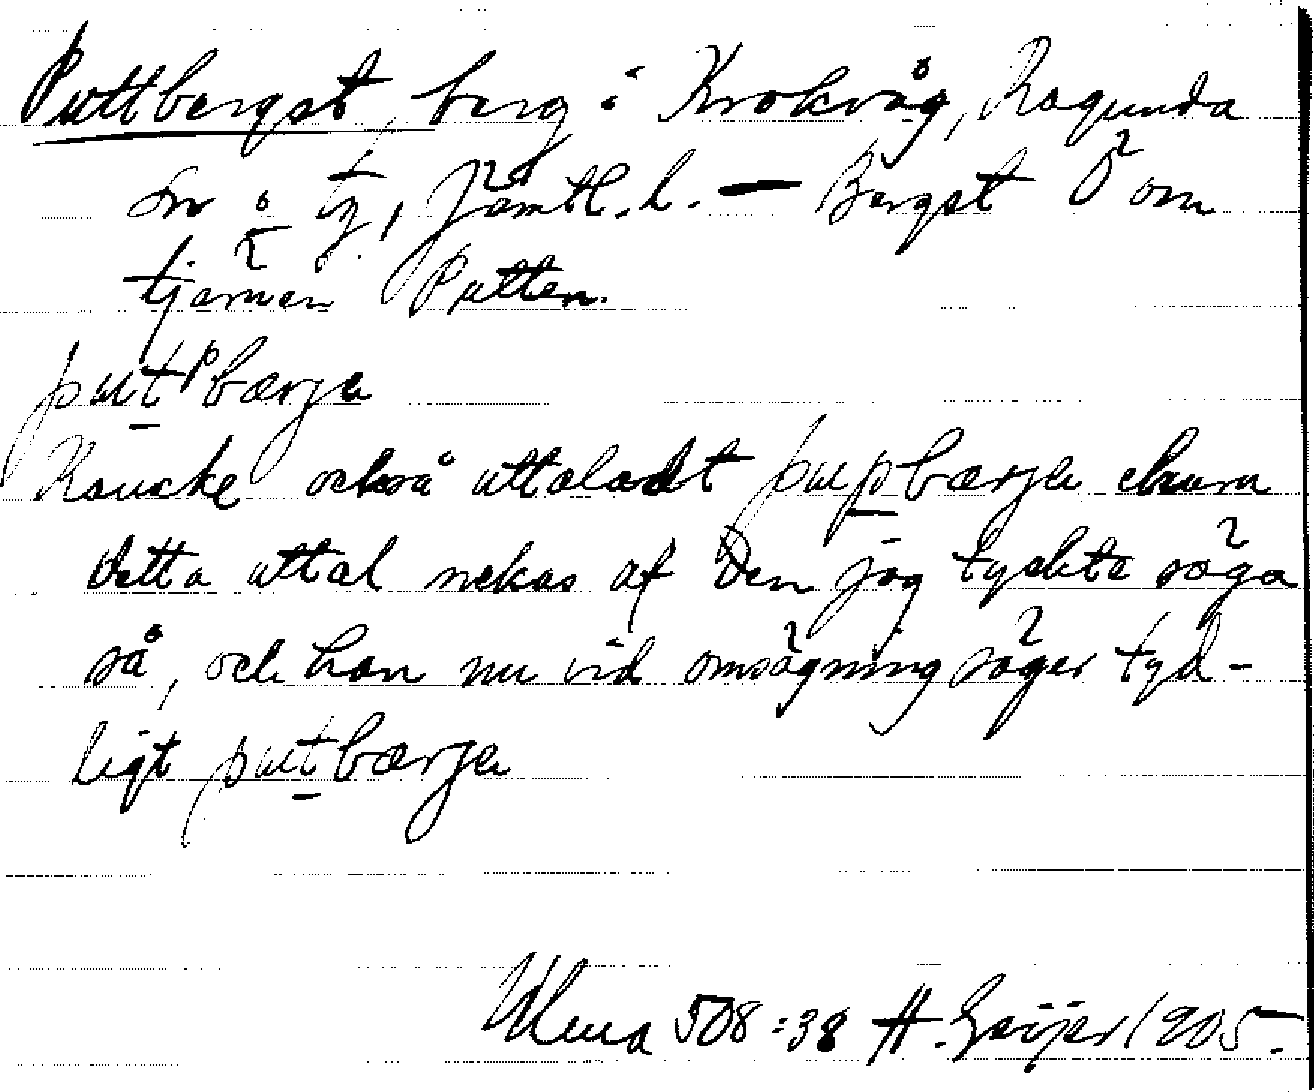 Puttberget, berg i Krokvåg, Ragunda
sn o tg, Jämtl. l. — Berget Ö om
tjärnen Putten.
putᵖbærje
Kanske också uttaladt pupbærje ehuru
detta uttal nekas af den jag tyckte säga
så, och han nu vid omsägning säger tyd-
ligt putbærje
Ulma 508:38 H. Geijer 1905.